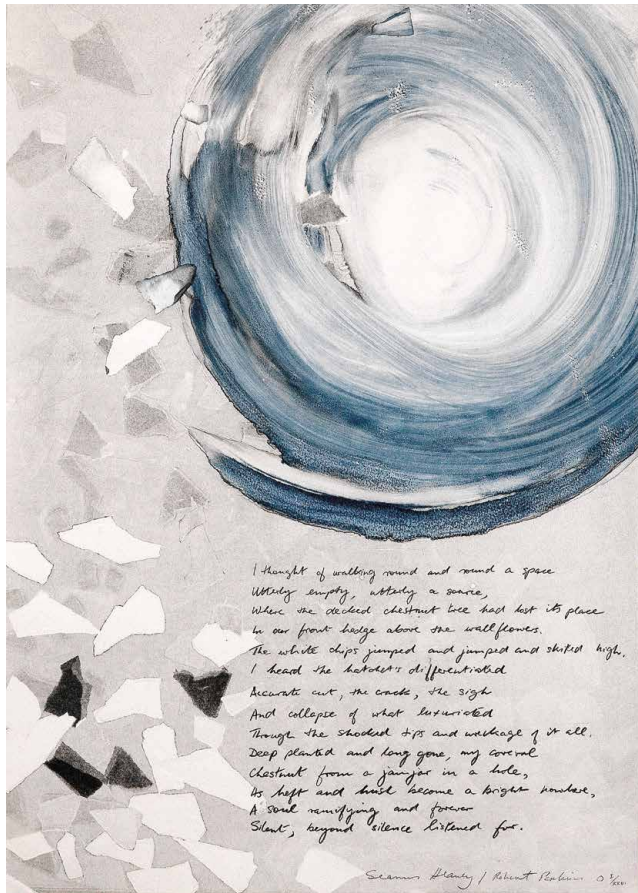 I thought of walking round and round a space
Utterly empty, utterly a source,
Where the decked chestnut tree had lost its place
In our front hedge above the wallflowers.
The white chips jumped and jumped and skited high.
I heard the hatchet's differentiated
Accurate cut, the crack, the sigh
And collapse of what luxuriated
Through the shocked tips and wreckage of it all.
Deep planted and long gone, my coeval
Chestnut from a jamjar in a hole,
Its heft and hush become a bright nowhere,
A soul ramifying and forever
Silent, beyond silence listened for.
Seamus Heaney / Robert Perkins